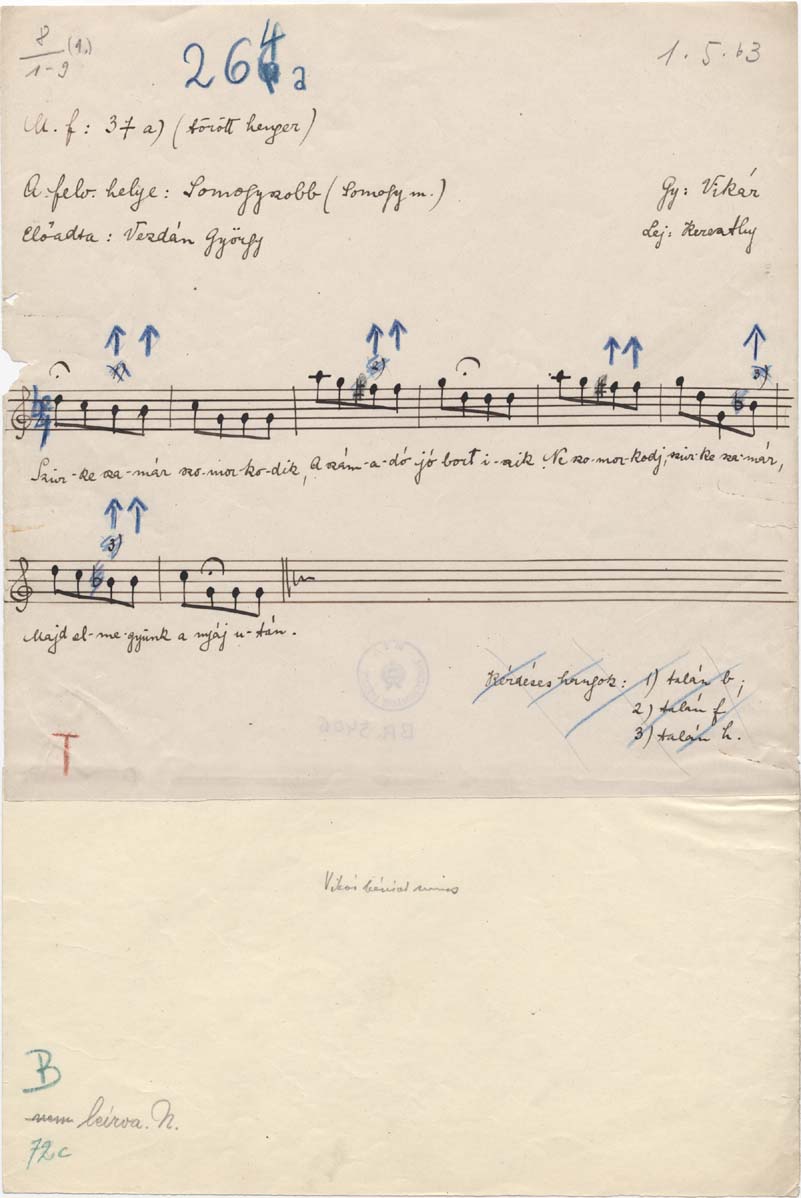 8 (1.)
1-9
264 a
1. 5. b3
M. f: 37 a) (törött henger)
A. felv. helye: Somogyszobb (Somogy m.)
Gy: Vikár
Előadta: Vezdán György
Lej: Kereszthy
1)
2)
3)
Szür-ke sza-már szo-mor-ko-dik, A szám-a-dó jó bort i-szik Ne szo-mor-kodj, szür-ke sza-már,
3)
Majd el-me-gyünk a nyáj u-tán.
Kérdéses hangok: 1) talán b;
2) talán f
3) talán h.
T
Vikár
B
nem leírva. N.
72c